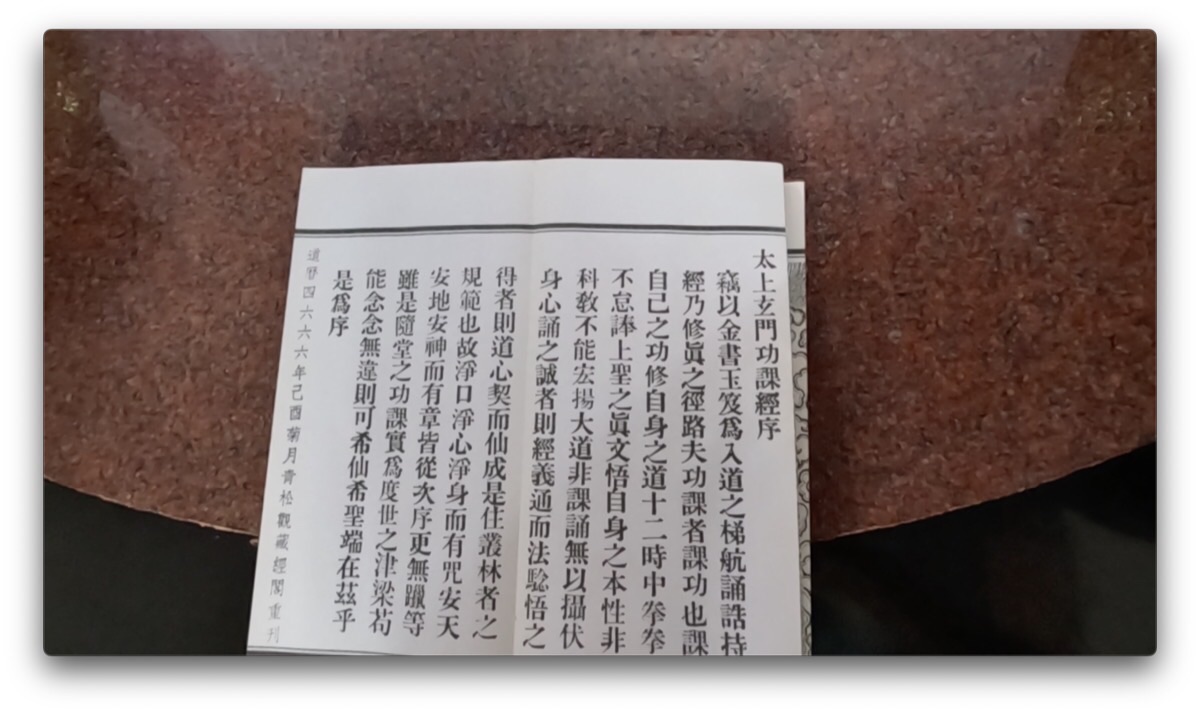 太上玄門功課經序
竊以金書玉笈爲入道之梯航誦誥持
經乃修眞之徑路夫功課者課功也課
自己之功修自身之道十二時中拳拳
不怠誦上聖之眞文悟自身之本性非
科敎不能宏揚大道非課誦無以攝伏
身心誦之誠者則經義通而法騐悟之
得者則道心契而仙成是住叢林者之
規範也故淨口淨心淨身而有咒安天
安地安神而有章皆從次序更無躐等
雖是隨堂之功課實爲度世之津梁苟
能念念無違則可希仙希聖端在茲乎
是爲序
道曆四六六六年己酉菊月青松觀藏經閣重刊